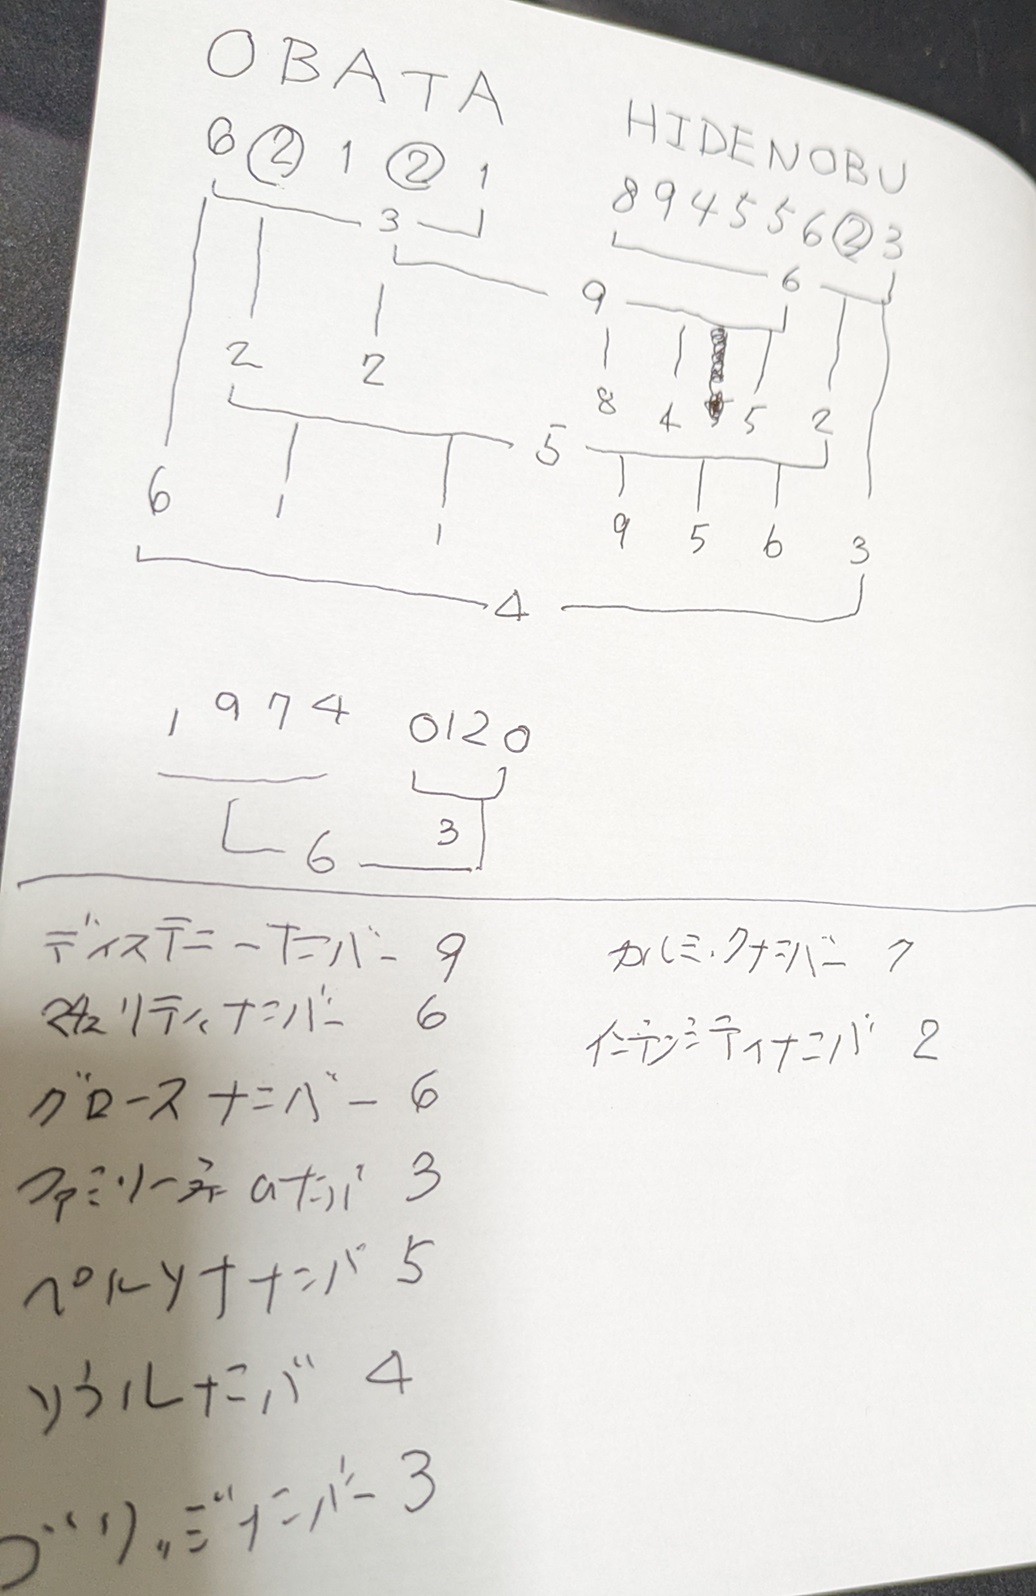 OBATA
6 2 1 2 1
HIDENOBU
8 9 4 5 5 6 2 3
3
6
9
2 2
8 4 5 2
5
6 1 1
9 5 6 3
4
1974 0120
3
6
ディステニーナンバー 9
マチュリティナンバー 6
グロースナンバー 6
ファミリーネームナンバ 3
ペルソナナンバ 5
ソウルナンバ 4
ブリッジナンバー 3
カルミックナンバー 7
インテンシティナンバ 2